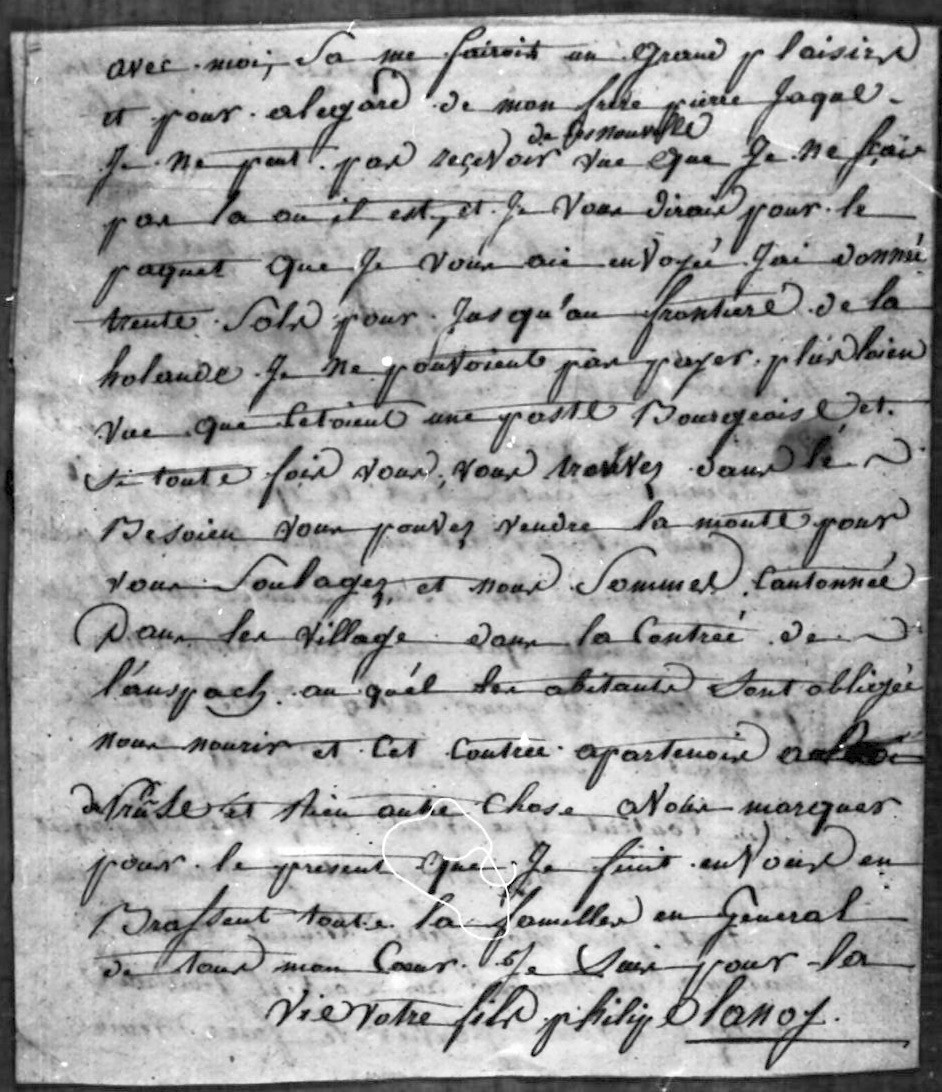 avec moi, Sa me fairoit un Grand plaisire
et pour alegard de mon frere pierre Jaque
de ses nouvelle
Je ne peut pas reçevoir vue que Je ne sçais
pas la ou il est, et Je Vous dirais pour le
paquet que Je vous aie envoyé Jai donné
trente Sols pour Jusqu'au frontiere de la
holande Je ne pouvoient pas payer plus loien
vue que Cetoient une poste Bourgeoise et
Si toute fois vous, vous trouvez dans le
Besoien vous pouvez vendre la monte pour
vous Soulagez, et nous Sommes Cantonnée
Dans les village dans la Contreé de
l'anspach au quél les abitants Sont obligée
nous nourir et Cet Contree apartenois au Roi
de Prusse et Rien autre Chose a Vous marquer
pour le present que Je finit en Vous en
Brassent toute la famille en General
de tous mon Cœur. Je Suis pour la
Vie votre fils philipe lanoy.